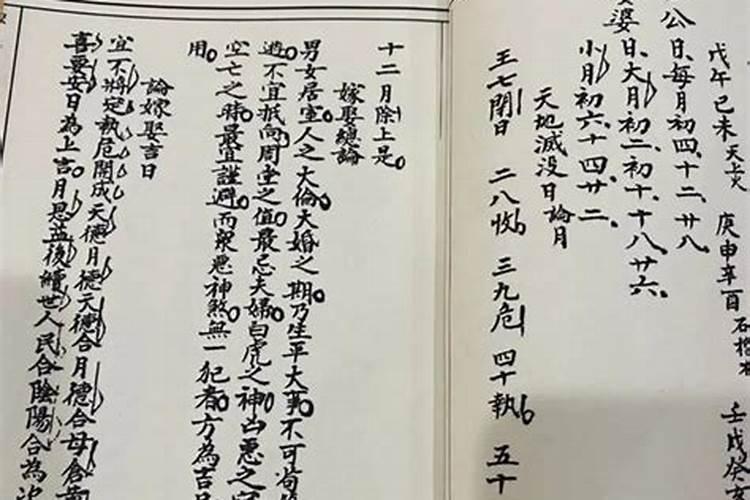 戊午己未天上火 庚申辛酉石榴木 壬戌癸
公日每月初四十二廿八
婆日大月初二初十十八廿六
小月初六十四廿二
天地滅没日論月
王七閉日 二八收 三九危 四十執 五十
十二月除上是
嫁娶總論
男女居室人之大倫大婚之期乃生平大事不可苟
避不宜抵向周堂之值最忌夫婦白虎之神凶惡之
空亡之時最宜謹避而衆惡神煞無一犯者方為吉
用
論嫁娶吉日
宜不將定執危開成天德月德天德合月德合母倉
喜要安日為上吉月恩益後續世人民合陰陽合為次